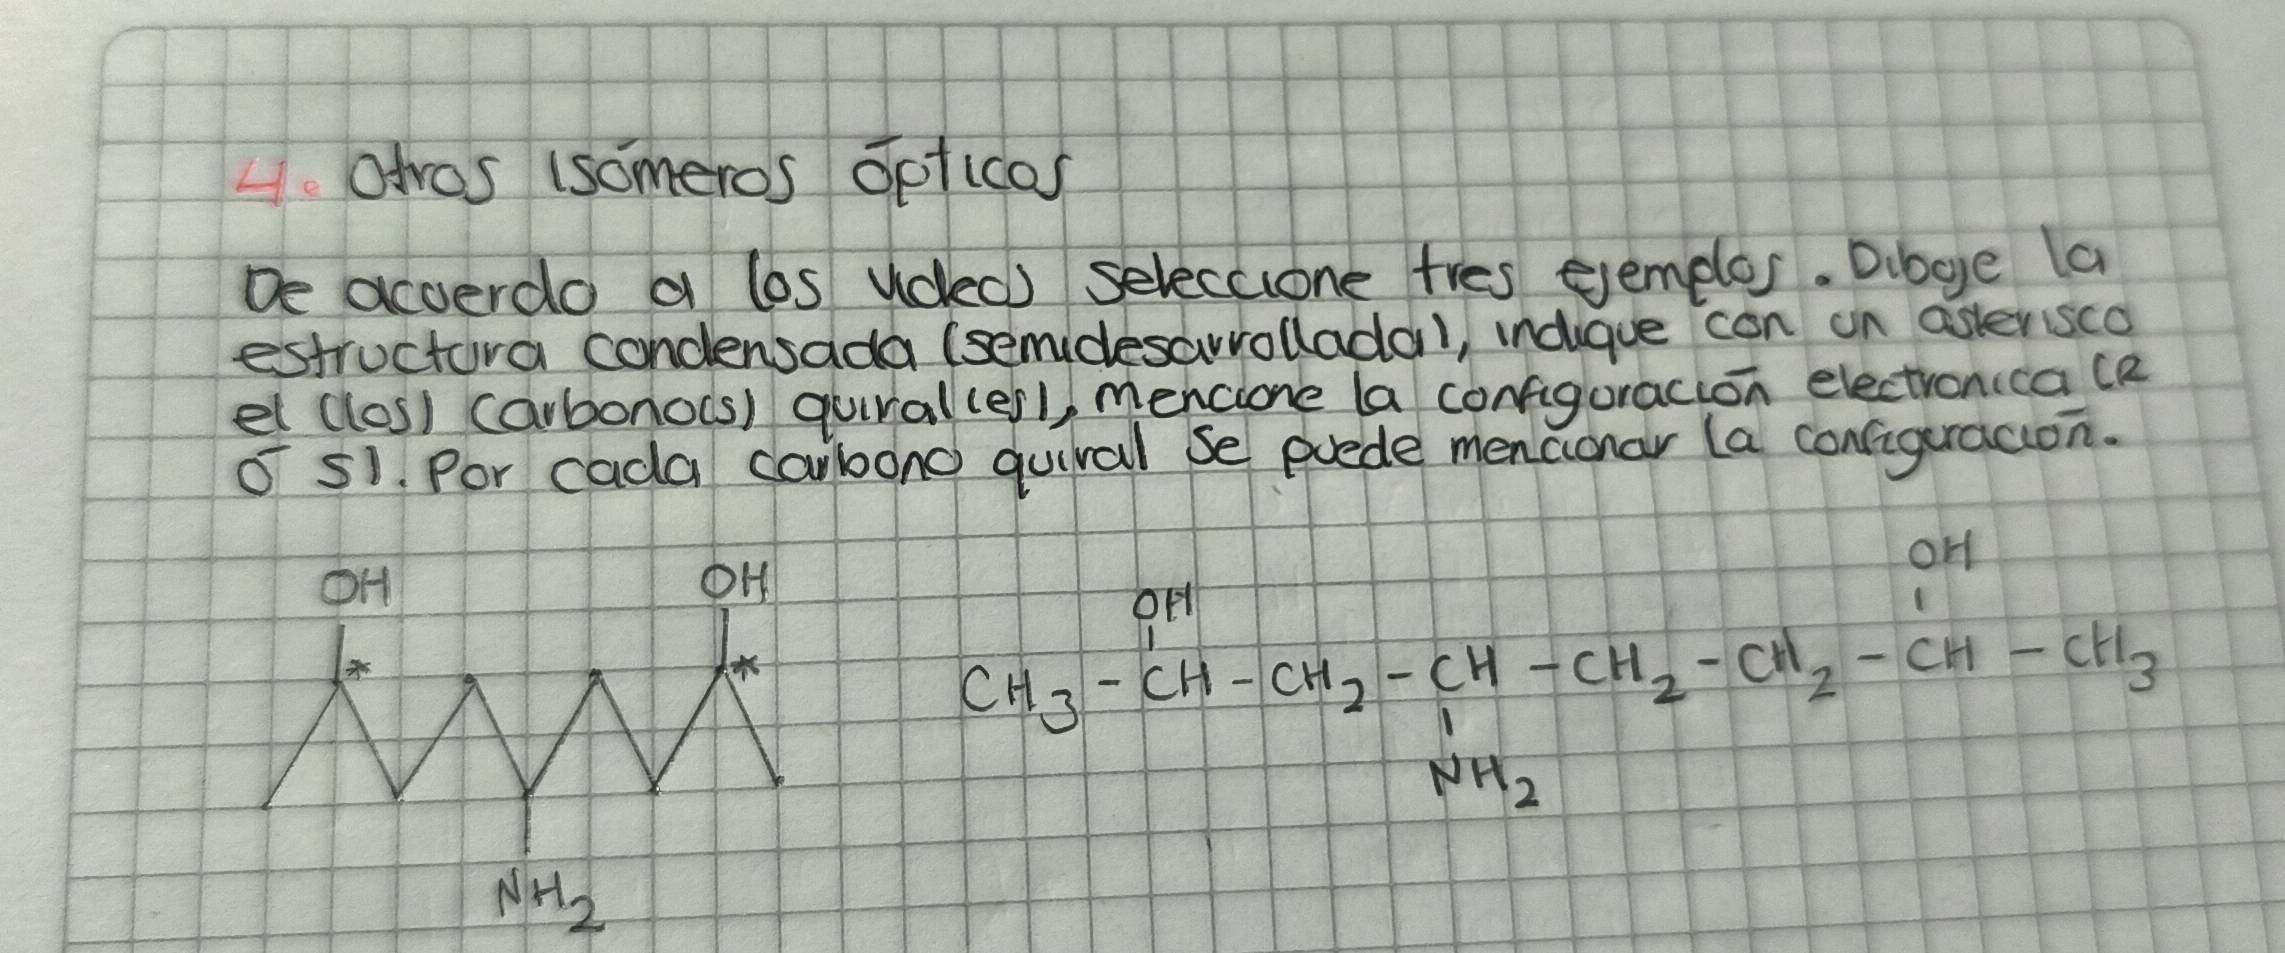 4. Otros isómeros ópticos
De acuerdo a los videos seleccione tres ejemplos. Dibuje la
estructura condensada (semidesarrollada), indique con un asterisco
el (los) carbono(s) quiral(es), mencione la configuración electronica (R
ó S). Por cada carbono quiral se puede mencionar la configuración.
OH OH
* *
NH2
OH OH
CH3 - CH - CH2 - CH - CH2 - CH2 - CH - CH3
NH2